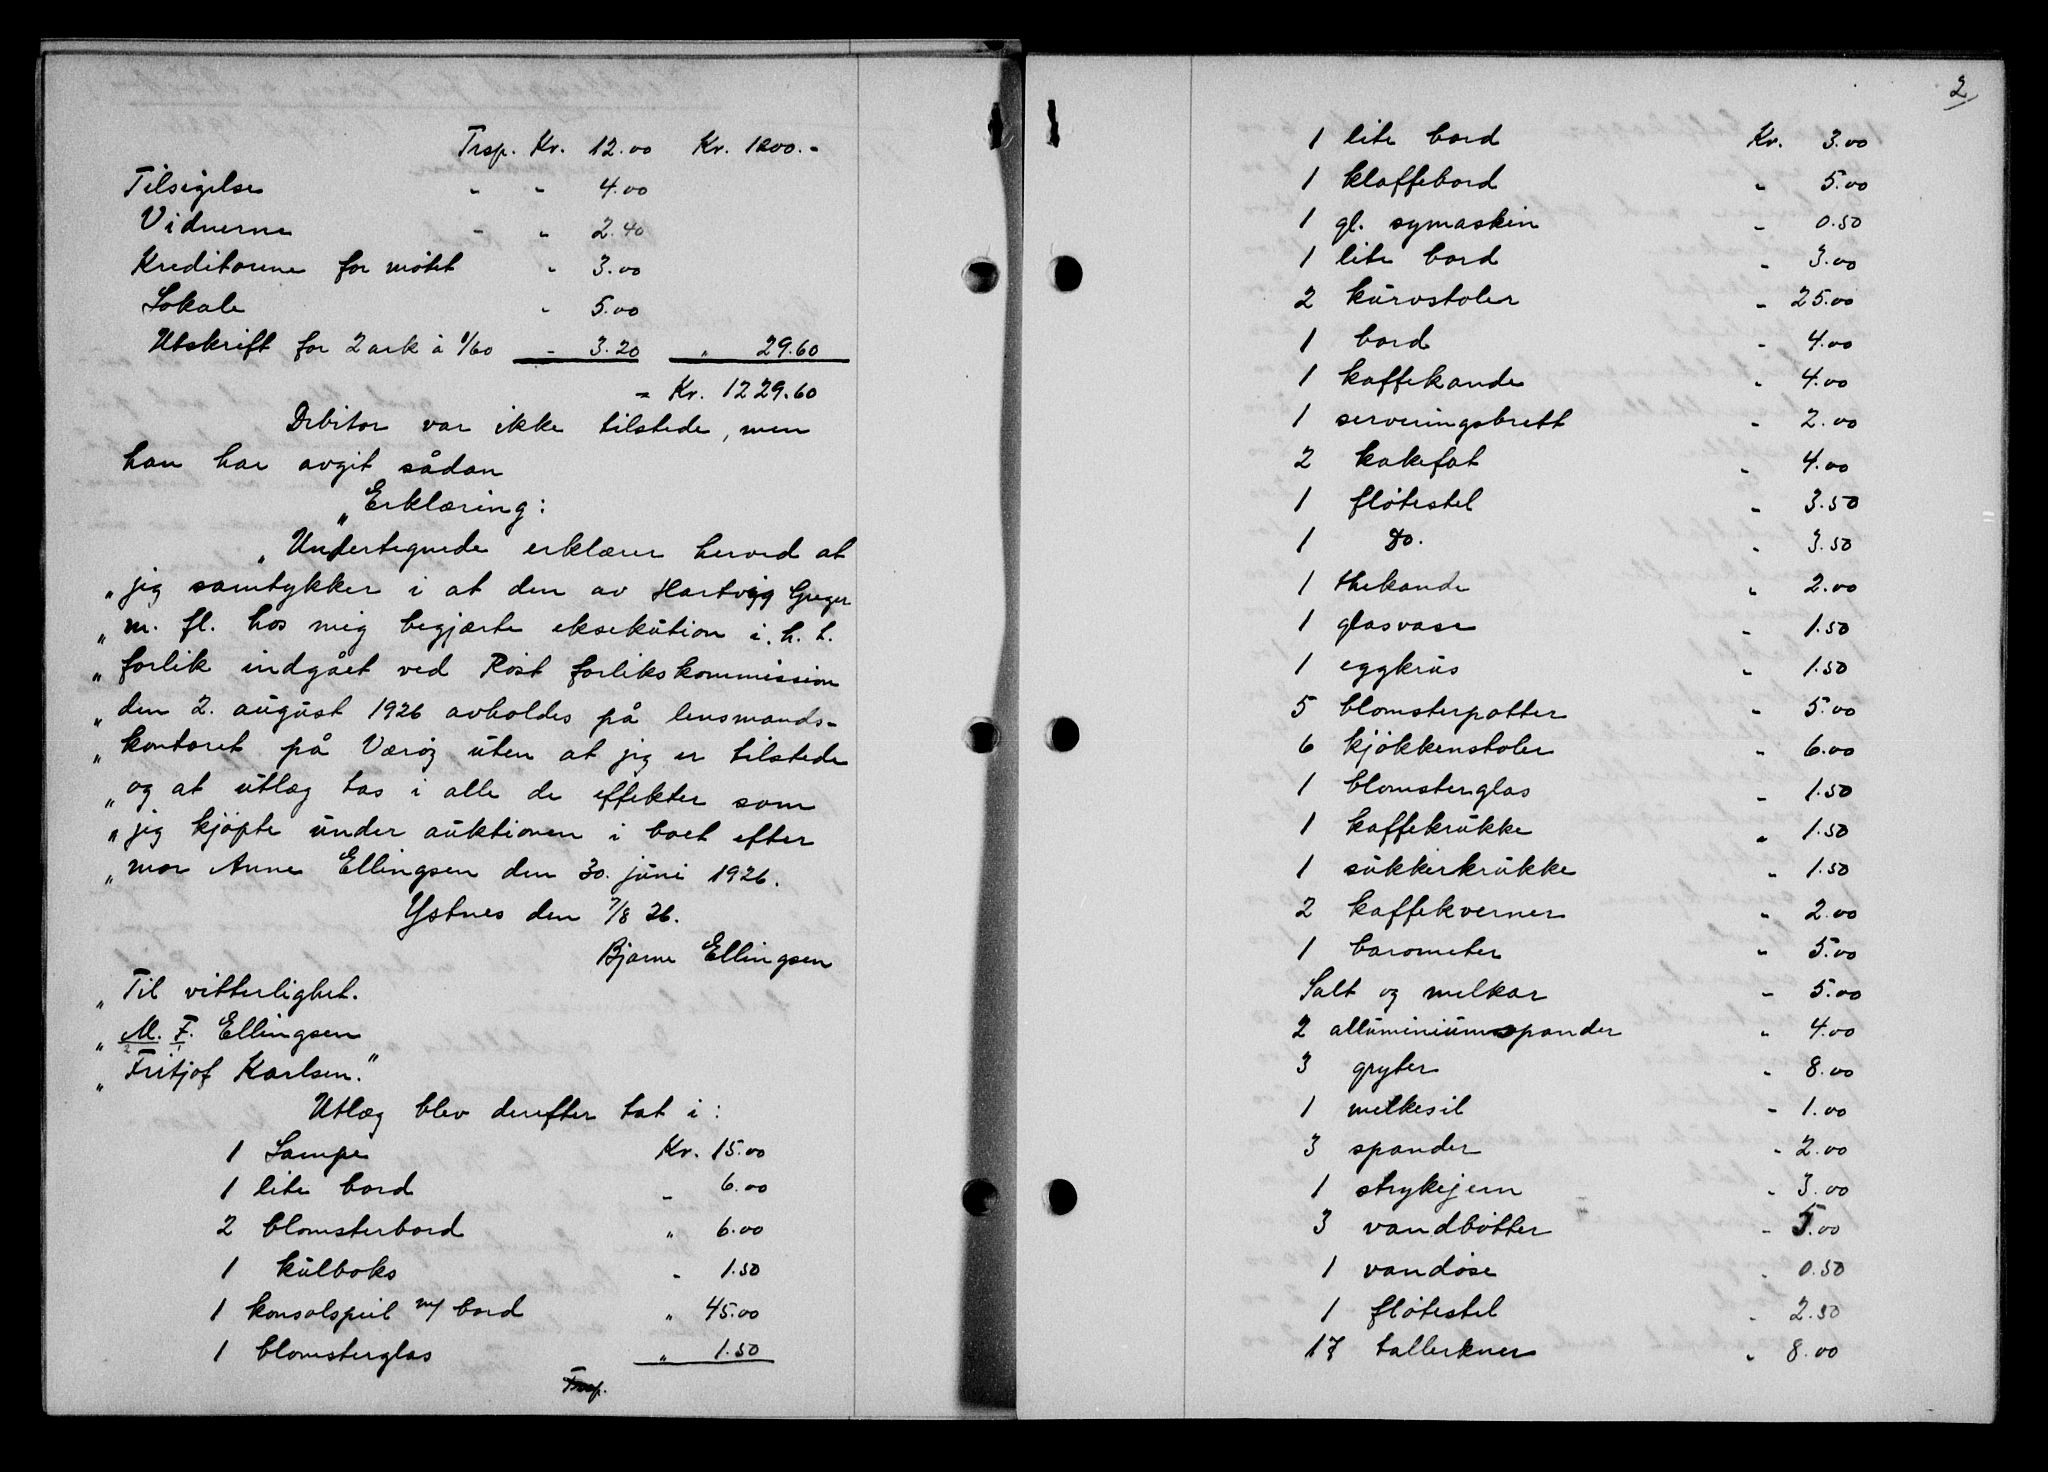 Trsp. Kr. 12.00 Kr. 1200.-
Tilsigelse - - 4.00
Vidnerne - - 2.40
Kreditorene for møtet - 3.00
Lokale - 5.00
Utskrift for 2 ark à 1/60 - 3.20 " 29.60
= Kr. 1229.60
Debitor var ikke tilstede, men
han har avgit sådan
"Erklæring:
"Undertegnede erklærer herved at
"jig samtykker i at den av Hartvigg Greger
"m. fl. hos mig begjærte eksekution i. h. t.
"forlik indgået ved Røst forlikskommission
"den 2. august 1926 avholdes på lensmands-
"kontoret på Værøy uten at jig er tilstede
"og at utlæg tas i alle de effekter som
"jig kjøpte under auktionen i boet efter
"mor Anne Ellingsen den 30. juni 1926.
Ystnes den 7/8 26.
Bjarne Ellingsen
"Til vitterlighet.
"M. F. Ellingsen
2 1
"Fritjof Karlsen."
Utlæg blev derefter tat i:
1 Lampe Kr. 15.00
1 lite bord - 6.00
2 blomsterbord " 6.00
1 kulboks - 1.50
1 konsolspeil m/ bord " 45.00
1 blomsterglas " 1.50
Trsp.
2
1 lite bord Kr. 3.00
1 klaffebord - 5.00
1 gl. symaskin - 0.50
1 lite bord - 3.00
2 kurvstoler - 25.00
1 bord - 4.00
1 kaffekande - 4.00
1 serveringsbrett - 2.00
2 kakefat - 4.00
1 fløtestel - 3.50
1 Do. - 3.50
1 thekande " 2.00
1 glasvase - 1.50
1 eggkrus " 1.50
5 blomsterpotter - 5.00
6 kjøkkenstoler " 6.00
1 blomsterglas - 1.50
1 kaffekrukke " 1.50
1 sukkerkrukke " 1.50
2 kaffekverner " 2.00
1 barometer - 5.00
Salt og melkar - 5.00
2 alluminiumspander " 4.00
3 gryter - 8.00
1 melkesil - 1.00
3 spander - 2.00
1 strykejern - 3.00
3 vandbøtter - 5.00
1 vandøse - 0.50
1 fløtestel - 2.50
17 tallerkner " 8.00